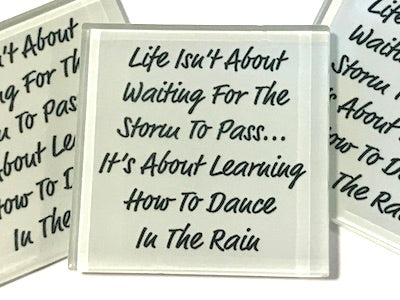 Life Isn't About
Waiting For The
Storm To Pass...
It's About Learning
How To Dance
In The Rain
About
Waiting For Th
Storm To Pass
About Le
How To D
In The
Life
Waiting
Storm
About
How To Da
The Rain